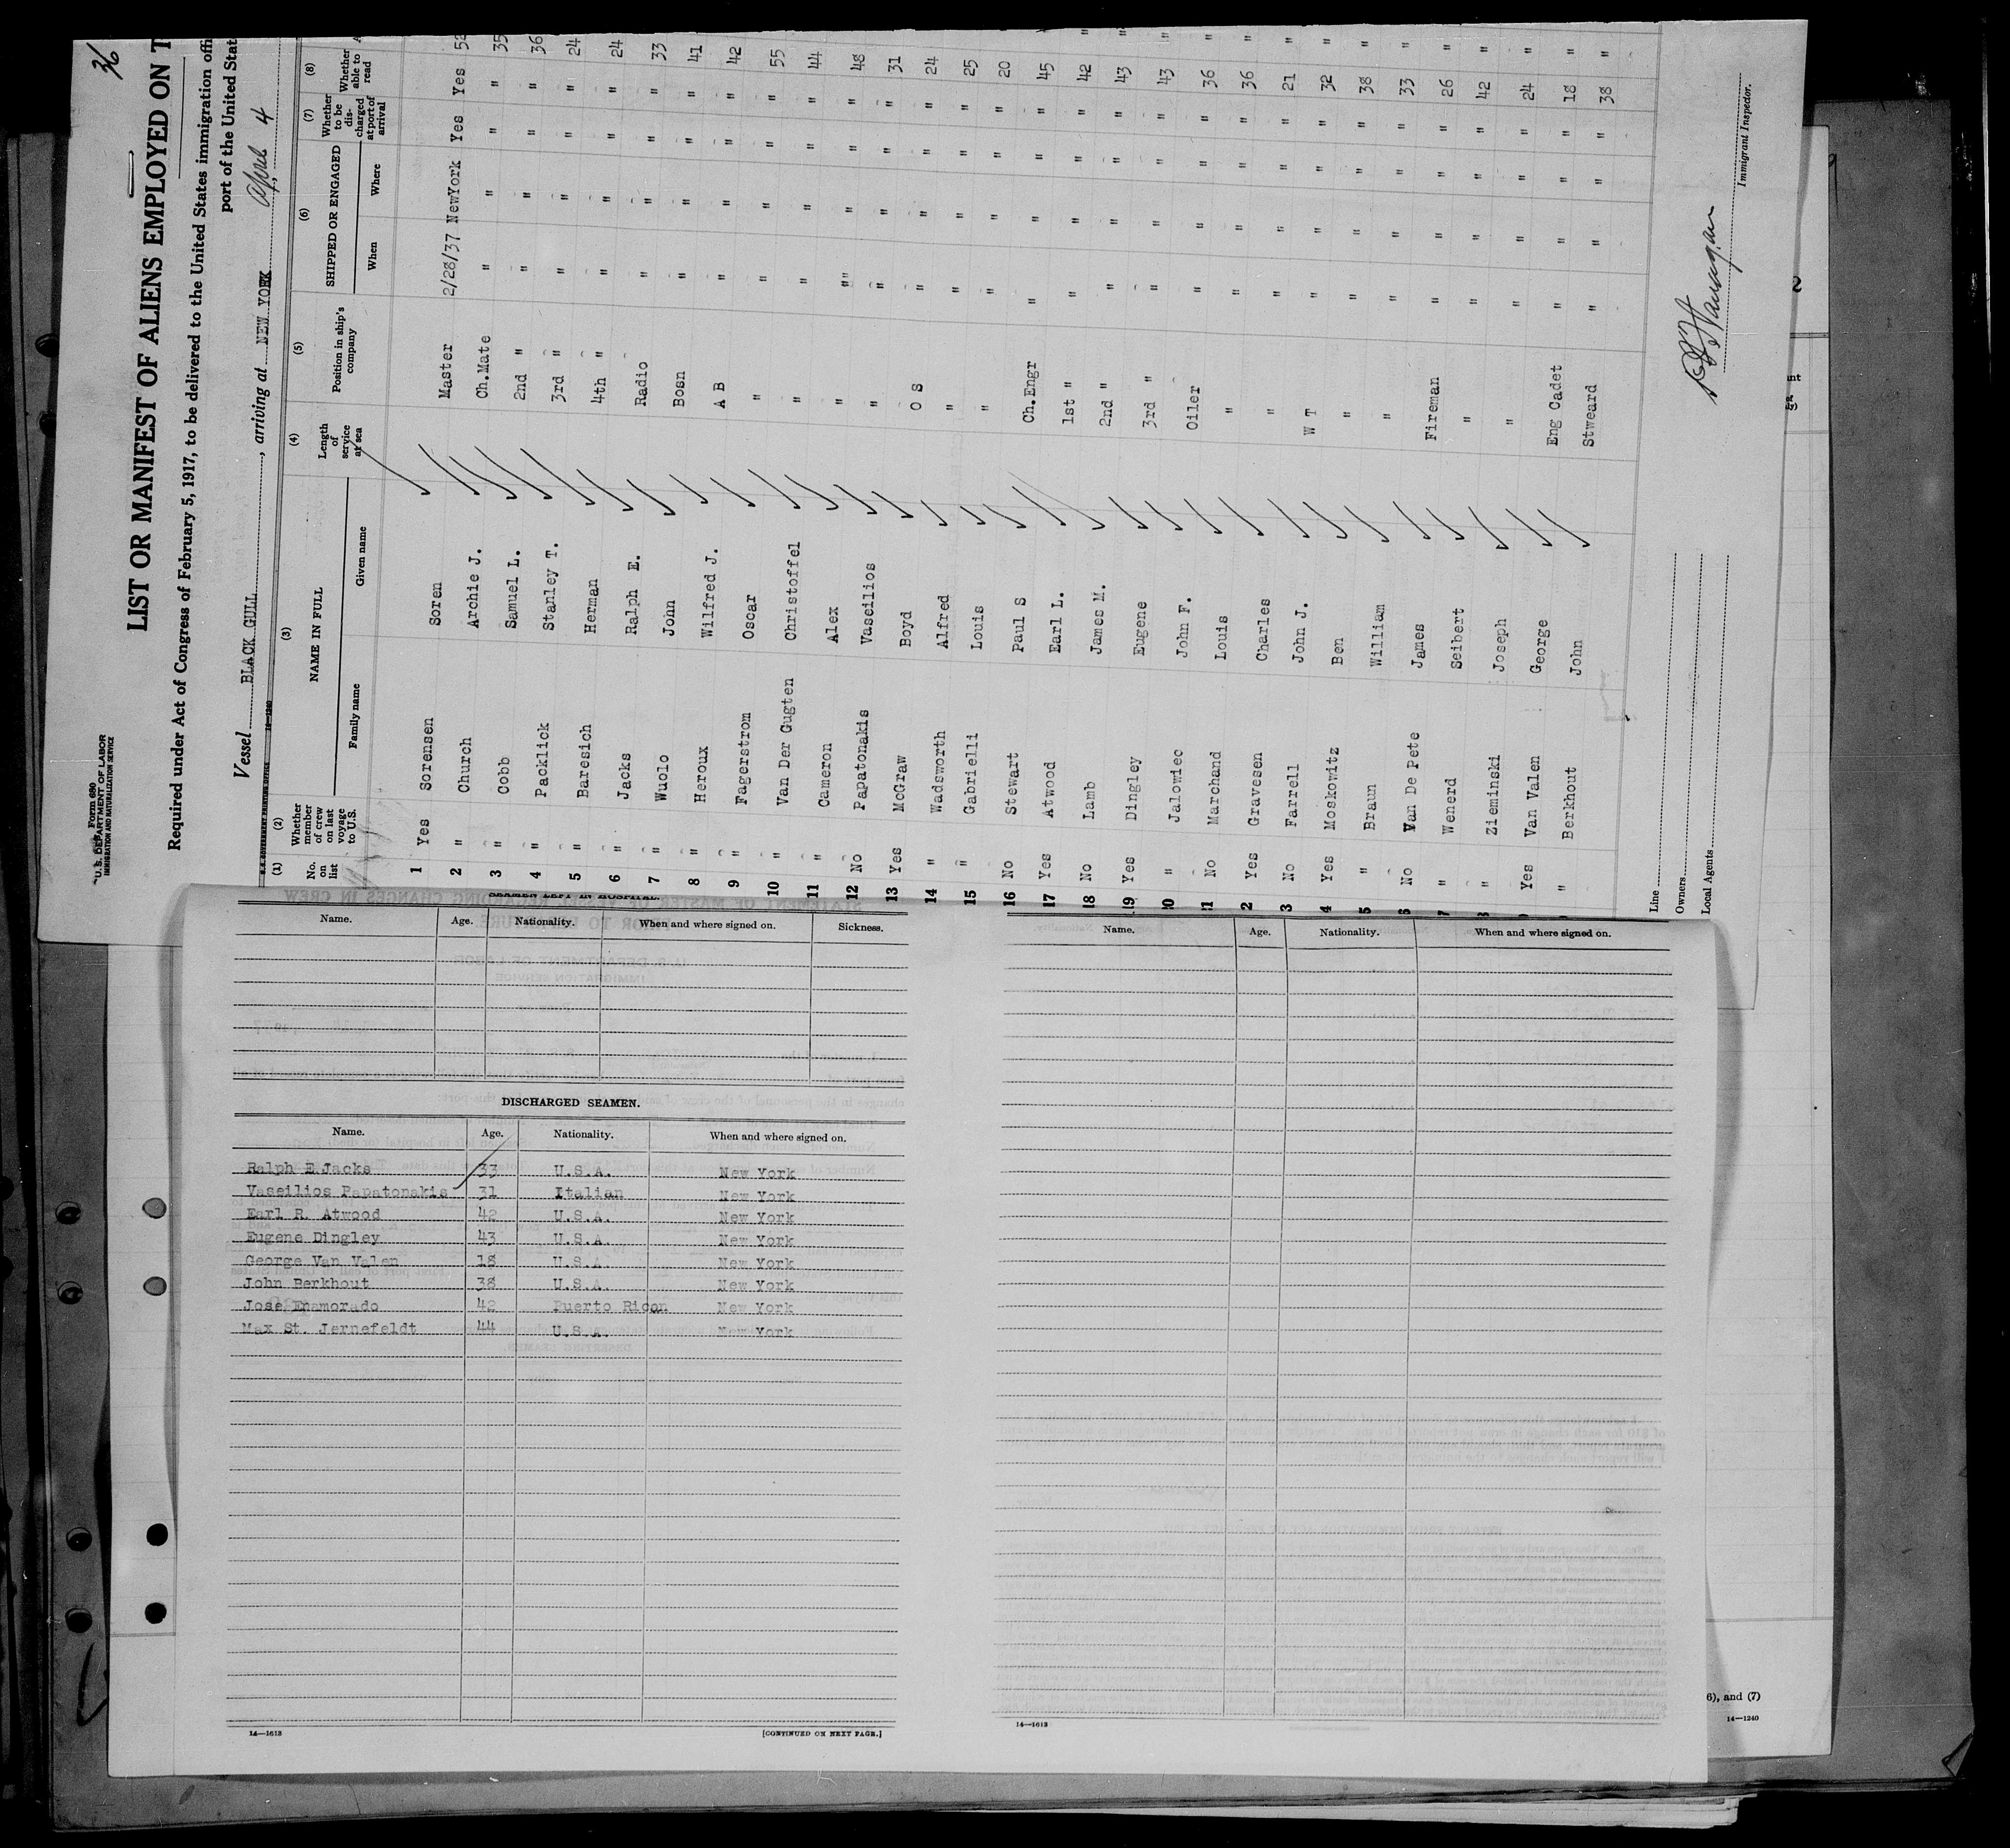 36
U.S. DEPARTMENT OF LABOR
IMMIGRATION AND NATURALIZATION SERVICE
Form 680
LIST OR MANIFEST OF ALIENS EMPLOYED ON T
Required under Act of Congress of February 5, 1917, to be delivered to the United States immigration offi
port of the United Stat
Vessel BLACK GULL, arriving at NEW YORK April 4
(1) (2) (3) (4) (5) (6) (7) (8)
No. on list Whether member of crew on last voyage to U.S. NAME IN FULL Family name Given name Length of service at sea Position in ship's company SHIPPED OR ENGAGED When Where Whether to be discharged at port of arrival Whether able to read A
1 Yes Sorensen Soren Master 2/28/37 NewYork Yes Yes 52
2 " Church Archie J. Ch.Mate " " " " 35
3 " Cobb Samuel L. 2nd " " " " " 36
4 " Packlick Stanley T. 3rd " " " " " 24
5 " Baresich Herman 4th " " " " " 24
6 " Jacks Ralph E. Radio " " " " 33
7 " Wuolo John Bosn " " " " 41
8 " Heroux Wilfred J. A B " " " " 42
9 " Fagerstrom Oscar " " " " " 55
10 " Van Der Gugten Christoffel " " " " " 44
11 " Cameron Alex " " " " " 48
12 No Papatonakis Vaseilios " " " " " 31
13 Yes McGraw Boyd O S " " " " 24
14 " Wadsworth Alfred " " " " " 25
15 " Gabrielli Louis " " " " " 20
16 No Stewart Paul S Ch.Engr " " " " 45
17 Yes Atwood Earl L. 1st " " " " " 42
18 No Lamb James M. 2nd " " " " " 43
19 Yes Dingley Eugene 3rd " " " " " 43
20 " Jalowiec John F. Oiler " " " " 36
21 No Marchand Louis " " " " " 36
2 Yes Gravesen Charles " " " " " 21
3 No Farrell John J. W T " " " " 32
4 Yes Moskowitz Ben " " " " " 38
5 " Braun William " " " " " 33
6 No Van De Pete James Fireman " " " " 26
7 " Wenerd Seibert " " " " " 42
8 " Zieminski Joseph " " " " " 24
Yes Van Valen George Eng Cadet " " " " 18
" Berkhout John Stweard " " " " 38
Line
Owners
Local Agents
Immigrant Inspector.
SEAMEN LEFT IN HOSPITAL.
Name. Age. Nationality. When and where signed on. Sickness.
DISCHARGED SEAMEN.
Name. Age. Nationality. When and where signed on.
Ralph E Jacks 33 U.S.A. New York
Vaseilios Papatonakis 31 Italian New York
Earl R. Atwood 42 U.S.A. New York
Eugene Dingley 43 U.S.A. New York
George Van Valen 18 U.S.A. New York
John Berkhout 38 U.S.A. New York
Jose Enamorado 42 Puerto Rican New York
Max St. Jernefeldt 44 U.S.A. New York
14—1613 [CONTINUED ON NEXT PAGE.]
Name. Age. Nationality. When and where signed on.
14—1613
6), and (7)
14—1240